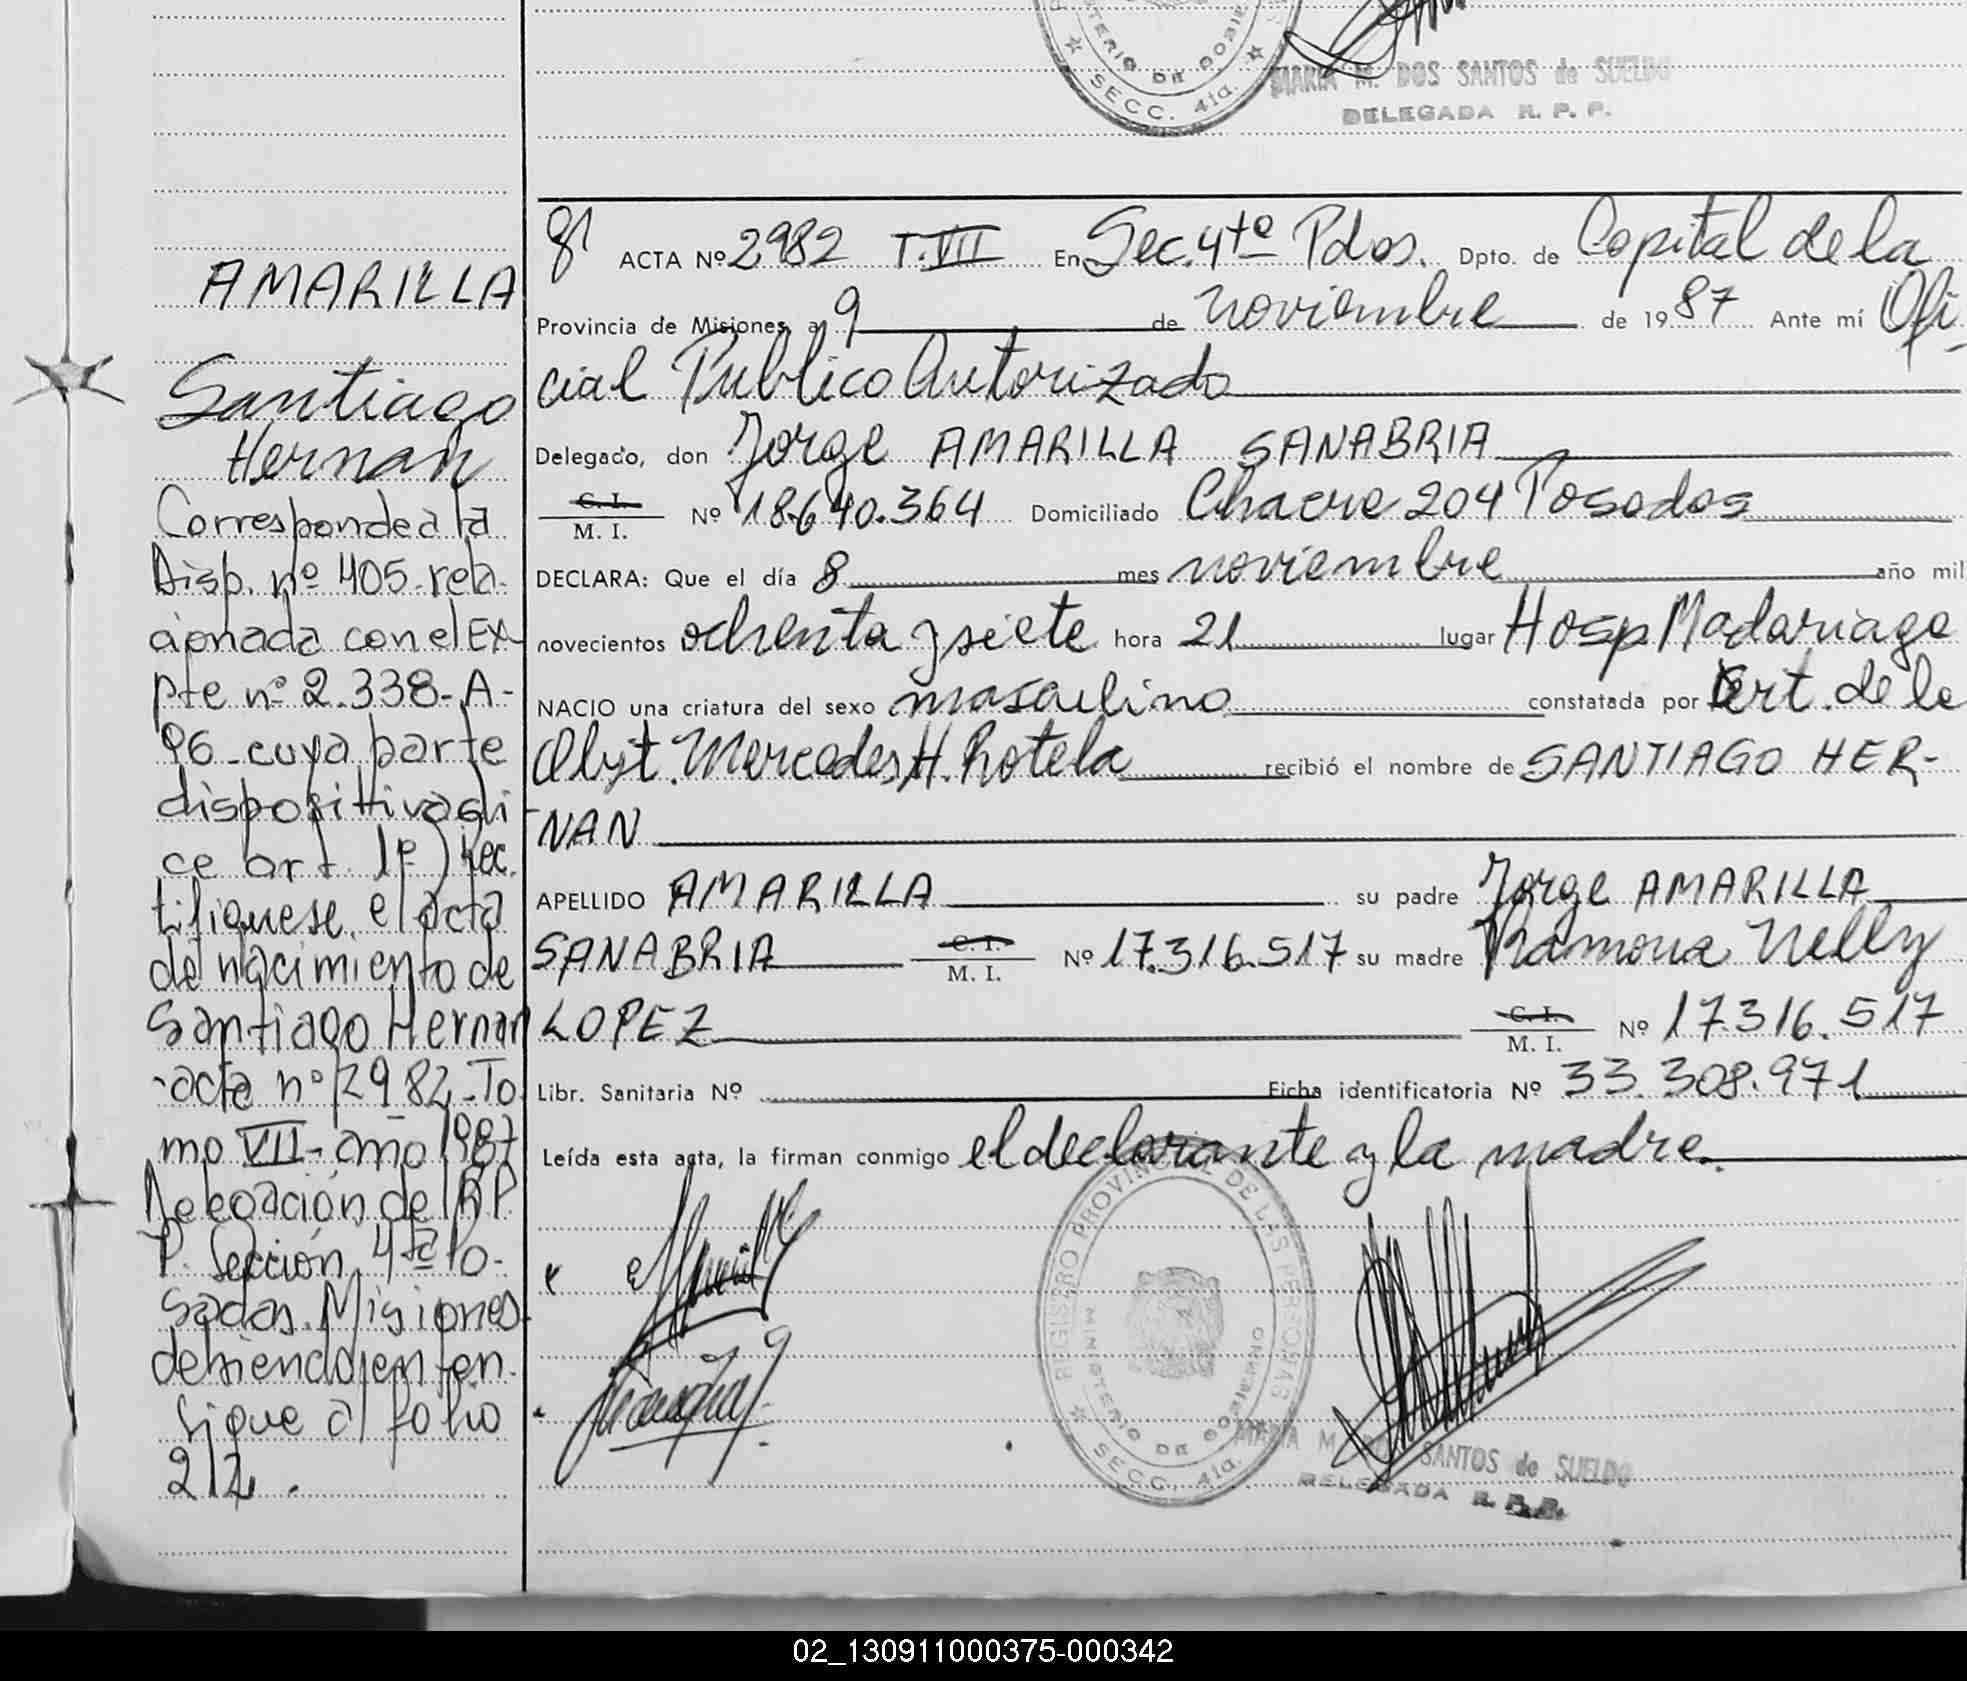 MINISTERIO DE GOBIERNO
SECC. 4ta.
MARIA M. DOS SANTOS de SUELDO
DELEGADA R. P. P.
AMARILLA
Santiago
Hernan
Corresponde a la
Disp. nº 405- rela-
cionada con el Ex-
pte nº 2.338-A-
96- cuya parte
dispositiva di
ce art. 1º) Rec
tifiquese el acta
de nacimiento de
Santiago Hernan
-acta nº 2982-To
mo VII- año 1987
Delegación del R.P.
P. Sección 4ta Po-
sadas. Misiones
debiendo en ten-
sigue al folio
212.
ACTA Nº 2982 T. VII En Sec. 4ta Pdas. Dpto. de Capital de la
Provincia de Misiones, a 9 de noviembre de 1987 Ante mí Ofi-
cial Publico Autorizado
Delegado, don Jorge AMARILLA SANABRIA
C. I.
M. I. Nº 18.640.364 Domiciliado Chacra 204 Posadas
DECLARA: Que el día 8 mes noviembre año mil
novecientos ochenta y siete hora 21 lugar Hosp Madariaga
NACIO una criatura del sexo masculino constatada por Cert. de la
Obst. Mercedes H. Rotela recibió el nombre de SANTIAGO HER-
NAN
APELLIDO AMARILLA su padre Jorge AMARILLA
SANABRIA C. I. M. I. Nº 17.316.517 su madre Ramona Nelly
LOPEZ C. I. M. I. Nº 17.316.517
Libr. Sanitaria Nº Ficha identificatoria Nº 33.308.971
Leída esta acta, la firman conmigo el declarante y la madre.
REGISTRO PROVINCIAL DE LAS PERSONAS
MINISTERIO DE GOBIERNO
SECC. 4ta.
MARIA M. DOS SANTOS de SUELDO
DELEGADA R. P. P.
02_130911000375-000342